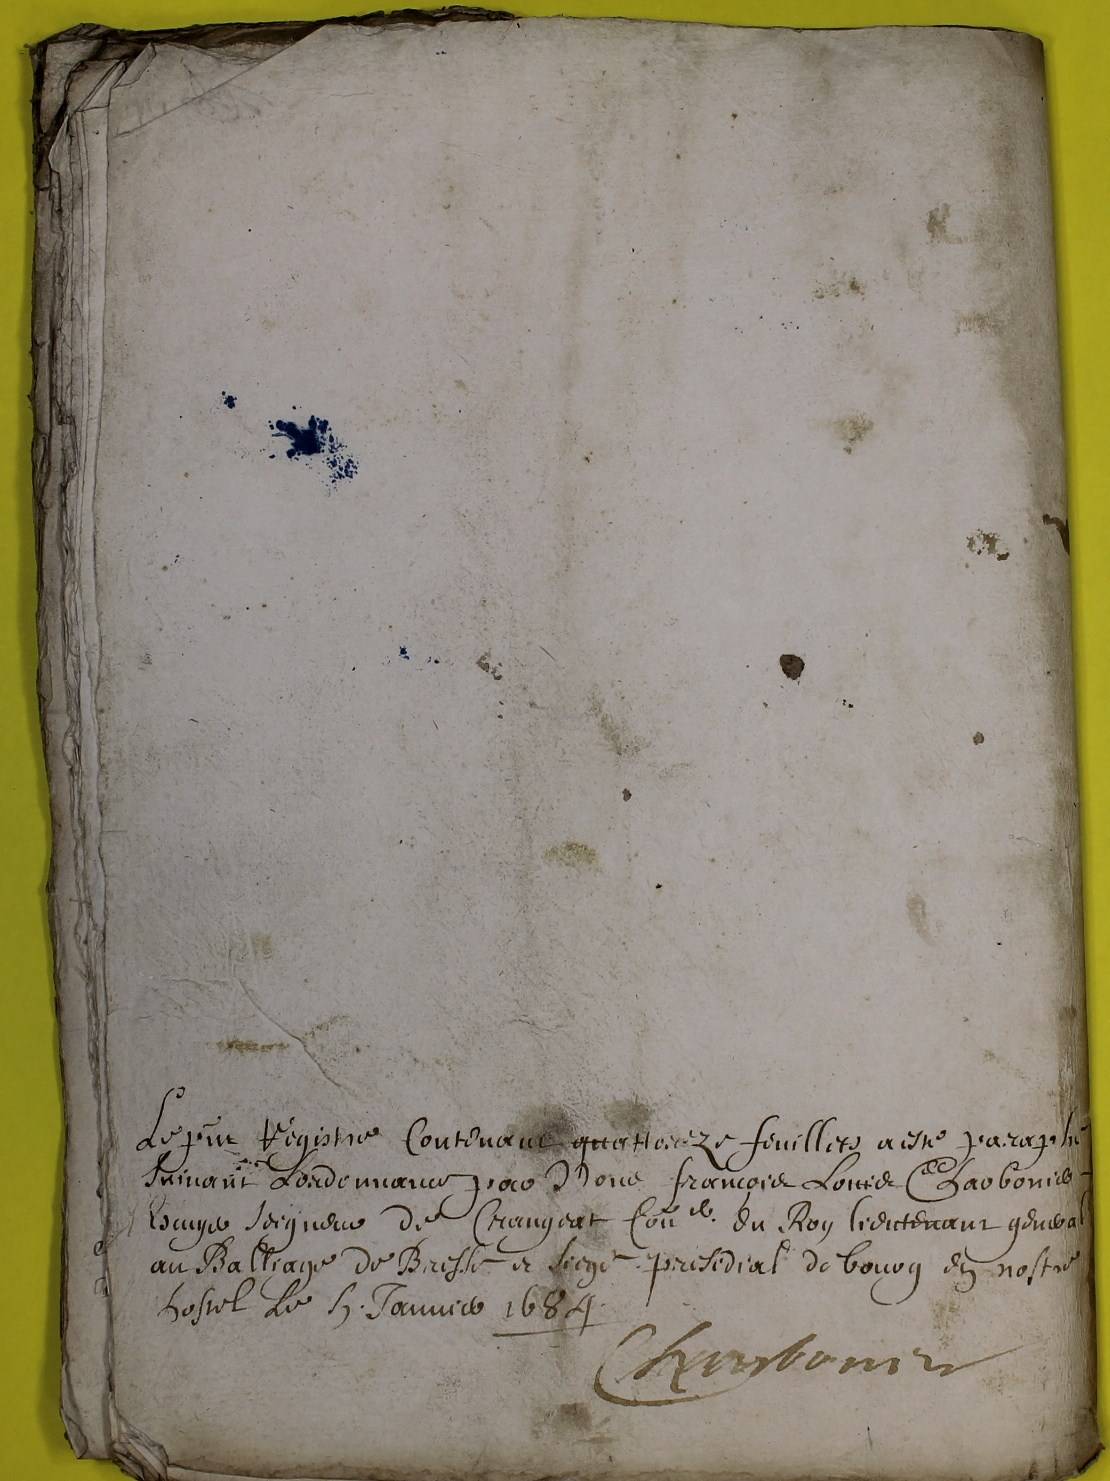 Le pñt Registre Contenant quattorze feuillets a esté paraphé
suivant Lordonnance par Nous françois Louis Charbonier
Escuyer seigneur De Crangeat Coner. du Roy lieutenant general
au Balliage De Bresse et siege presidial de bourg en nostre
hostel Le Janvier 1684
Charbonier